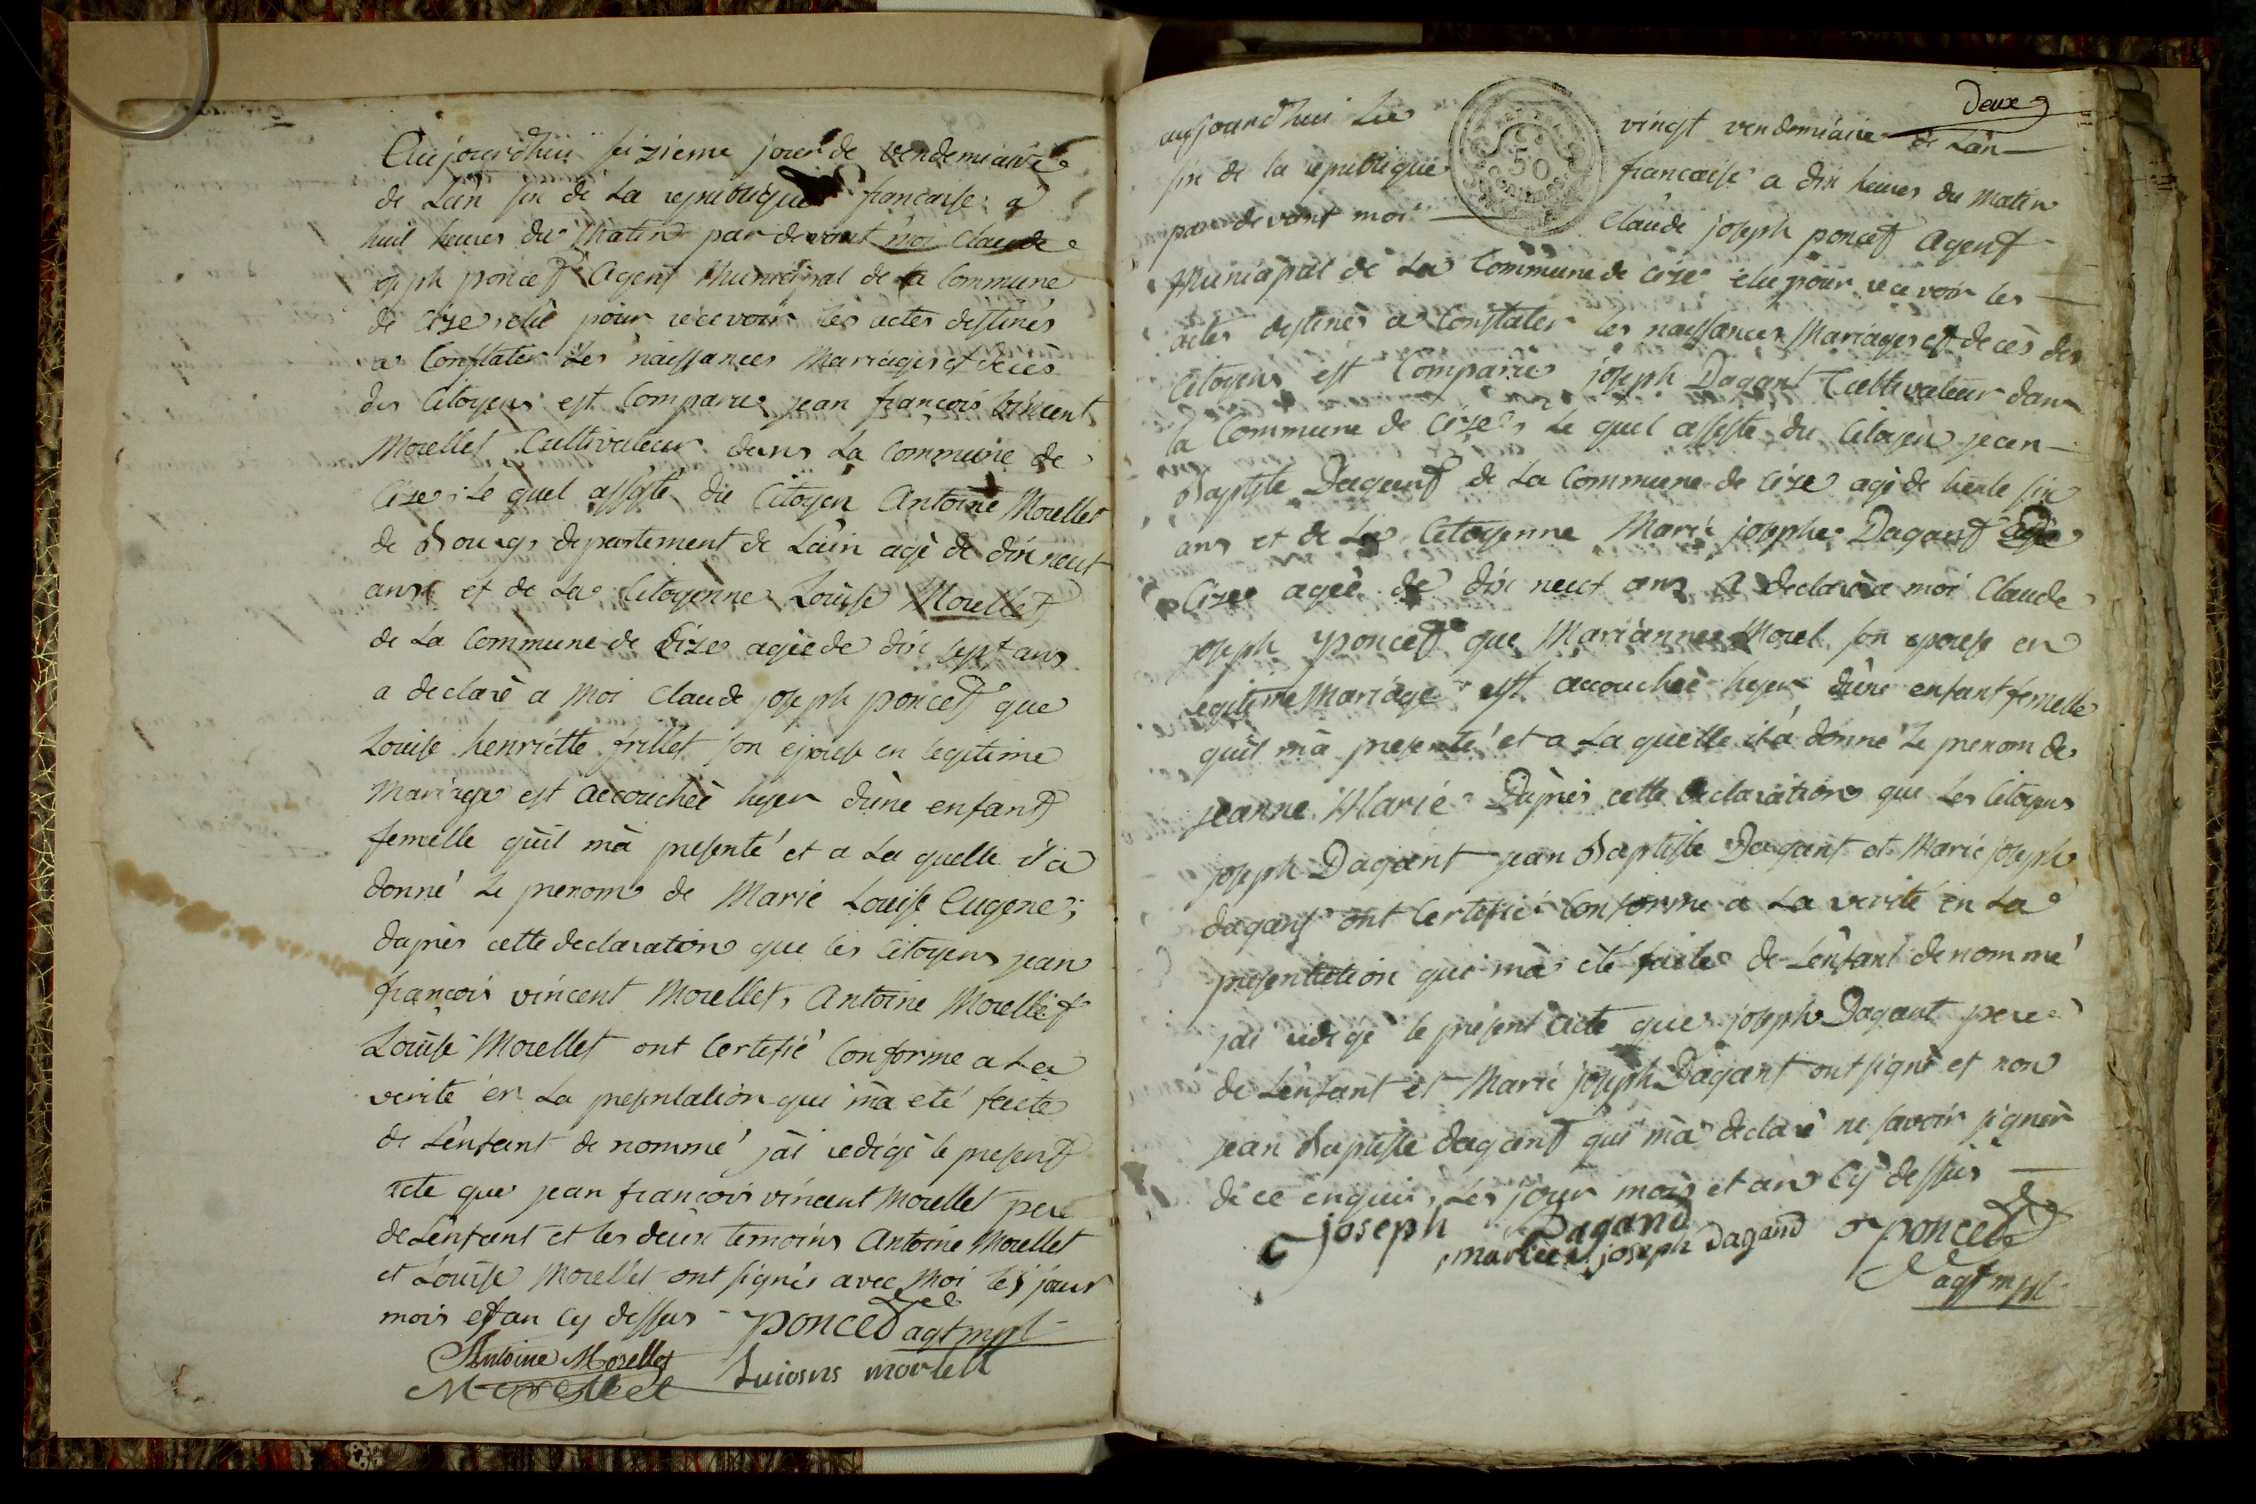 Aujourdhui seizieme jour de vendemiaire
de Lan six de La republique francaise a
huit heures du Matin par devant moi Claude
joseph poncet Agent Municipal de la Commune
de Cize, elu pour recevoir les actes destinés
a Constater Les naissances Mariages et decès
des Citoyens est Comparu jean françois vincent
Morellet Cultivateur dans La Commune de
Cize, Le quel assisté du Citoyen Antoine Morellet
de Bourg, departement de Lain agé de dix neuf
ans et de La Citoyenne Louise Morellet
de La Commune de Cize agée de dix sept ans
a declaré a Moi Claude joseph poncet que
Louise henriette frillet son epouse en legitime
Mariage est accouchée hyer dune enfant
femelle quil ma presenté et a La quelle il a
donné Le prenom de Marie Louise Eugene;
dapres cette declaration que les Citoyens jean
françois vincent Morellet, Antoine Morellet
Louise Morellet ont Certifié Conforme a La
verité en La presentation qui ma eté faite
de Lenfant denommé jai redigé le present
acte que jean françois vincent Morellet pere
de Lenfant et les deux temoins Antoine Morellet
et Louise Morellet ont signés avec Moi les jour
mois et an Cy dessus - poncet agt mpl
Antoine Morellet
Morellet
Deux
aujourdhui Le vingt vendemiaire de Lan
six de la republique francaise a dix heures du Matin
pardevant moi Claude joseph poncet Agent
Municipal de La Commune de Cize elu pour recevoir les
actes destinés a Constater les naissances Mariages et decès des
Citoyens est Comparu joseph Dagant Cultivateur dans
la Commune de Cize, Le quel assisté du Citoyen jean
Baptiste Dagant de La Commune de Cize agé de trente six
ans et de La Citoyenne Marie josephe Dagant
Cize agée de dix neuf ans a declaré a moi Claude
joseph poncet que Marianne Morel son epouse en
legitime Mariage est accouchée hyer dune enfant femelle
quil ma presenté et a La quelle il a donné Le prenom de
jeanne Marie Dapres cette declaration que Les Citoyens
joseph Dagant jean Baptiste Dagant et Marie joseph
dagant ont Certifié Conforme a La verité en La
presentation qui ma eté faite de Lenfant denommé
jai redigé le present acte que joseph Dagant pere
de Lenfant et Marie joseph Dagant ont signé et non
jean Baptiste dagant qui ma declaré ne savoir signer
de ce enquis, Les jour mois et an Cy dessus
joseph Dagand poncet
marie joseph Dagand
agt mpl
50